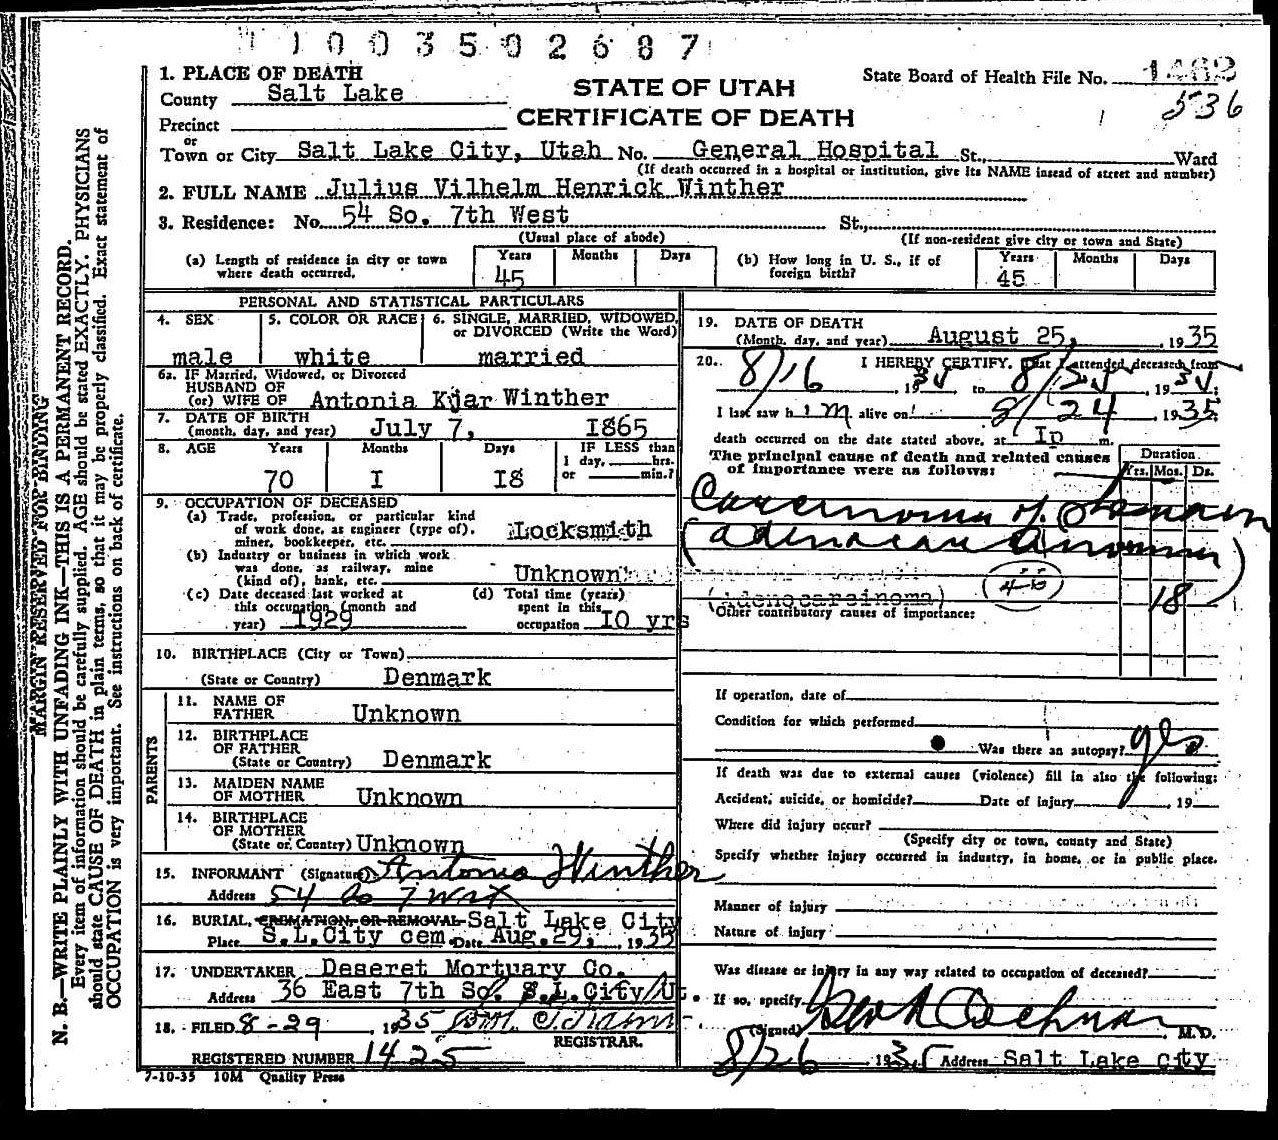 1003502687
1. PLACE OF DEATH
County Salt Lake
STATE OF UTAH
CERTIFICATE OF DEATH
State Board of Health File No. 1462
536
Precinct
or
Town or City Salt Lake City, Utah No. General Hospital St., Ward
(If death occurred in a hospital or institution, give its NAME insead of street and number)
2. FULL NAME Julius Vilhelm Henrick Winther
3. Residence: No. 54 So. 7th West St.,
(Usual place of abode) (If non-resident give city or town and State)
(a) Length of residence in city or town where death occurred. Years 45 Months Days
(b) How long in U. S., if of foreign birth? Years 45 Months Days
PERSONAL AND STATISTICAL PARTICULARS
4. SEX male
5. COLOR OR RACE white
6. SINGLE, MARRIED, WIDOWED, or DIVORCED (Write the Word) married
6a. IF Married, Widowed, or Divorced
HUSBAND OF
(or) WIFE OF Antonia Kjar Winther
7. DATE OF BIRTH
(month, day, and year) July 7, I865
8. AGE Years 70 Months I Days I8 IF LESS than 1 day, hrs. or min.?
9. OCCUPATION OF DECEASED
(a) Trade, profession, or particular kind
of work done, as engineer (type of),
miner, bookkeeper, etc. Locksmith
(b) Industry or business in which work
was done, as railway, mine
(kind of), bank, etc. Unknown
(c) Date deceased last worked at
this occupation (month and
year) 1929
(d) Total time (years)
spent in this
occupation IO yrs
10. BIRTHPLACE (City or Town)
(State or Country) Denmark
PARENTS
11. NAME OF
FATHER Unknown
12. BIRTHPLACE
OF FATHER
(State or Country) Denmark
13. MAIDEN NAME
OF MOTHER Unknown
14. BIRTHPLACE
OF MOTHER
(State or Country) Unknown
15. INFORMANT (Signature) Antonia Winther
Address 54 So 7 West
16. BURIAL, CREMATION, OR REMOVAL Salt Lake City
Place S.L.City cem. Date Aug. 29, 1935
17. UNDERTAKER Deseret Mortuary Co.
Address 36 East 7th So. S.L.City, Ut.
18. FILED 8-29, 1935
REGISTRAR.
REGISTERED NUMBER 1425
7-10-35 10M Quality Press
19. DATE OF DEATH
(Month, day, and year) August 25, 1935
20. I HEREBY CERTIFY, That I attended deceased from
8/16, 1935 to 8/25, 1935;
I last saw him alive on 8/24 1935;
death occurred on the date stated above, at Ip m.
The principal cause of death and related causes
of importance were as follows:
Duration
Yrs. Mos. Ds.
Carcinoma of Stomach
(adenocarcinoma)
46
18
(Adenocarcinoma)
Other contributory causes of importance:
If operation, date of
Condition for which performed
Was there an autopsy? yes
If death was due to external causes (violence) fill in also the following:
Accident, suicide, or homicide? Date of injury, 19
Where did injury occur?
(Specify city or town, county and State)
Specify whether injury occurred in industry, in home, or in public place.
Manner of injury
Nature of injury
Was disease or injury in any way related to occupation of deceased?
If so, specify
(Signed) M.D.
8/26 1935 Address Salt Lake City
MARGIN RESERVED FOR BINDING
N. B.—WRITE PLAINLY WITH UNFADING INK—THIS IS A PERMANENT RECORD.
Every item of information should be carefully supplied. AGE should be stated EXACTLY. PHYSICIANS
should state CAUSE OF DEATH in plain terms, so that it may be properly classified. Exact statement of
OCCUPATION is very important. See instructions on back of certificate.